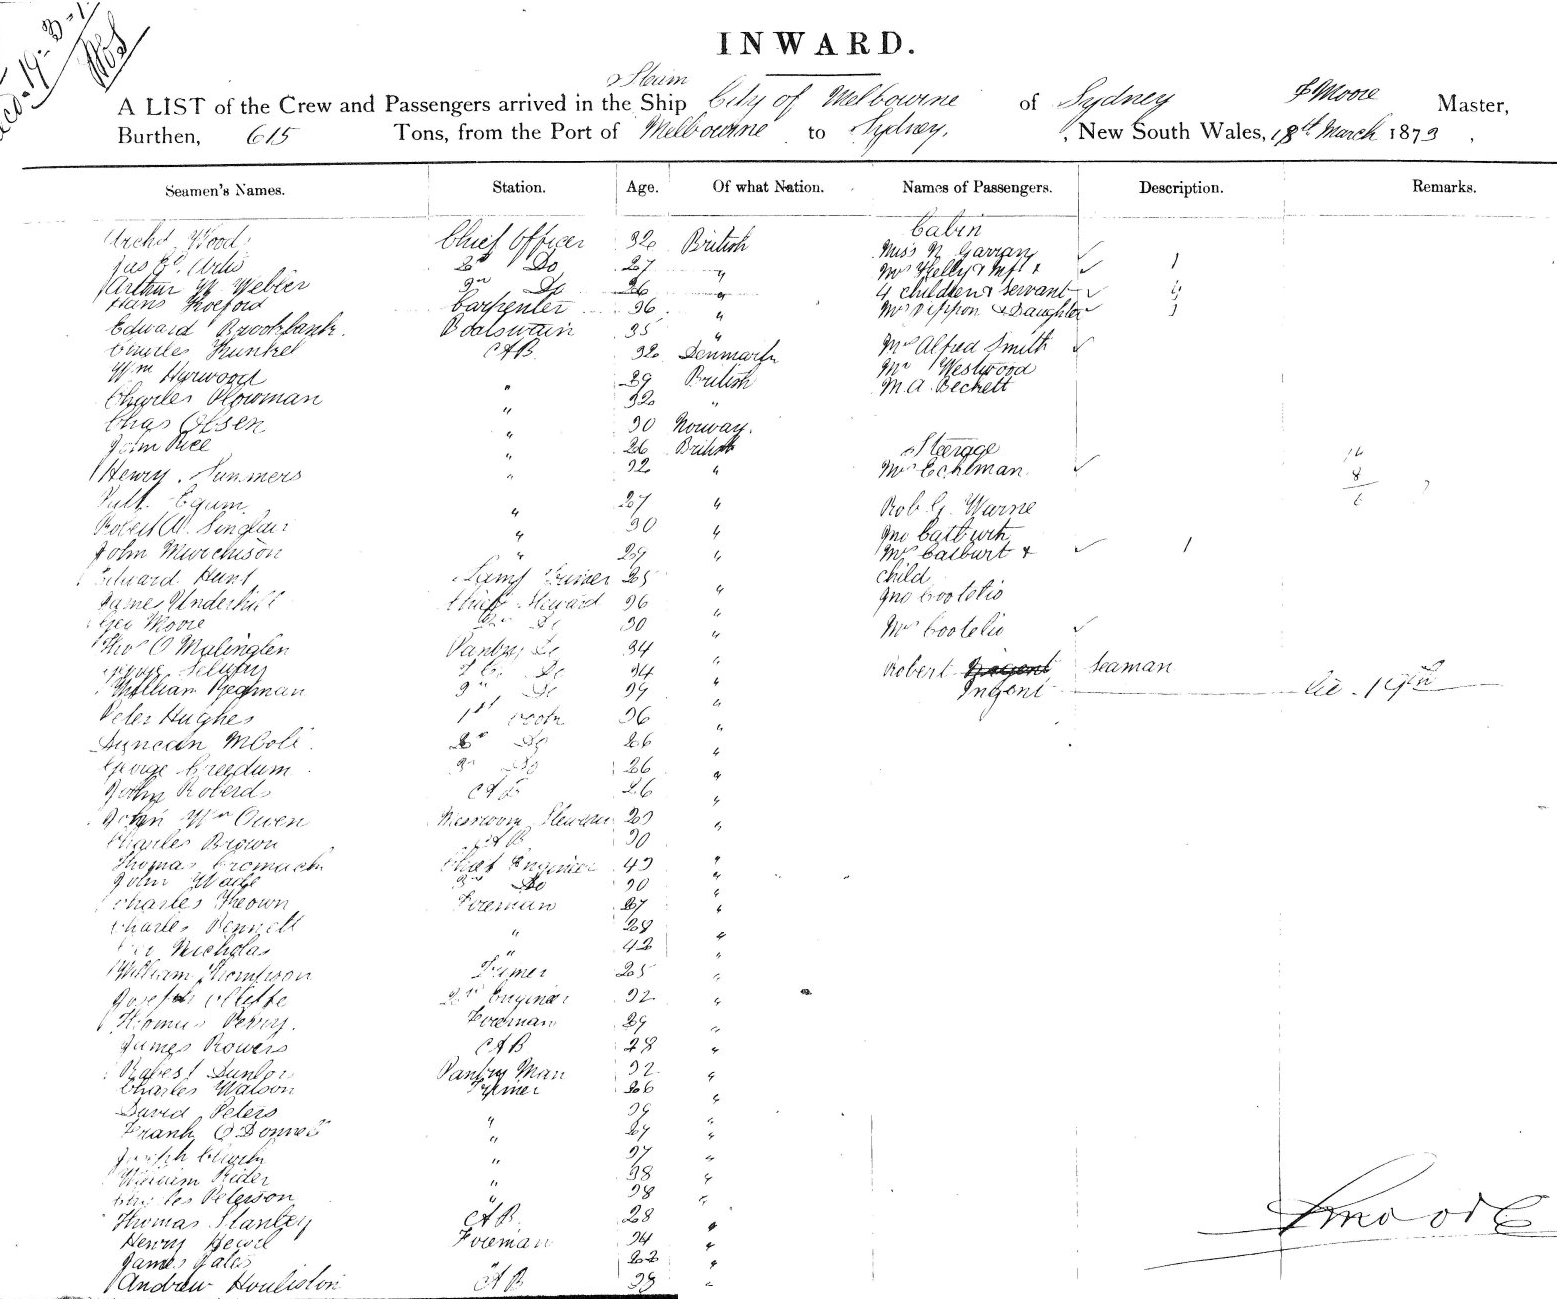 INWARD.
Steam
A LIST of the Crew and Passengers arrived in the Ship City of Melbourne of Sydney F Moore Master,
Burthen, 615 Tons, from the Port of Melbourne to Sydney, New South Wales, 18th March 1873,
Seamen's Names. Station. Age. Of what Nation. Names of Passengers. Description. Remarks.
Cabin
Archd Wood Chief Officer 32 British Miss N. Garran
2nd Do 27 " Mrs Kelly & Inft &
Arthur W Webber 3rd Do 26 " 4 children & Servant
Hans Carpenter 36 " Mrs Sippon & Daughter
Edward Brookbank. Boatswain 35 "
Charles Kunkel AB 32 Denmark Mrs Alfred Smith
Wm Harwood " 39 British Mr Westwood
Charles Plowman " 32 " M. A. Beckett
Chas Olsen " 30 Norway.
John Rice " 26 British Steerage
Henry Summers " 32 " Mrs Echlman
" 27 " Rob. G. Warne
Robert A. Sinclair " 30 " Jno
John Murchison " " Mrs &
Edward Hunt Lamp Trimer 25 " child
James Underhill Chief Steward 36 " Jno Cootelis
Geo Moore 2nd Do 30 " Mrs Cootelis
Thos O Mulinglen Pantry Do 34 "
George Selway Do 34 " Robert Seaman
William Do 39 " Ingent 19th
Peter Hughes 1st Cook 36 "
Duncan McColl 2nd Do 26 "
George Creedum 3rd Do 26 "
John Roberds AB 26 "
John Wm Owen Steward "
Charles Brown AB 30 "
Thomas Cromach Chief Engineer 43 "
John Wade 3rd Do 30 "
Charles Keown Foreman 27 "
Charles Bennett " 28 "
Nicholas " 42 "
William Thompson Trimer 25 "
Joseph 2nd Engineer 32 "
Thomas Perry. Foreman 29 "
James Rowers AB 28 "
Robert Dunlop Pantry Man 32 "
Charles Watson Trimer 26 "
David Peters " 39 "
Frank O Donnell " 27 "
Joseph " 37 "
William Rider " 38 "
Charles Peterson " 38 "
Thomas Stanley AB 28 "
Henry Foreman 34 "
James Gates " 22 "
Andrew Houliston AB 33 "